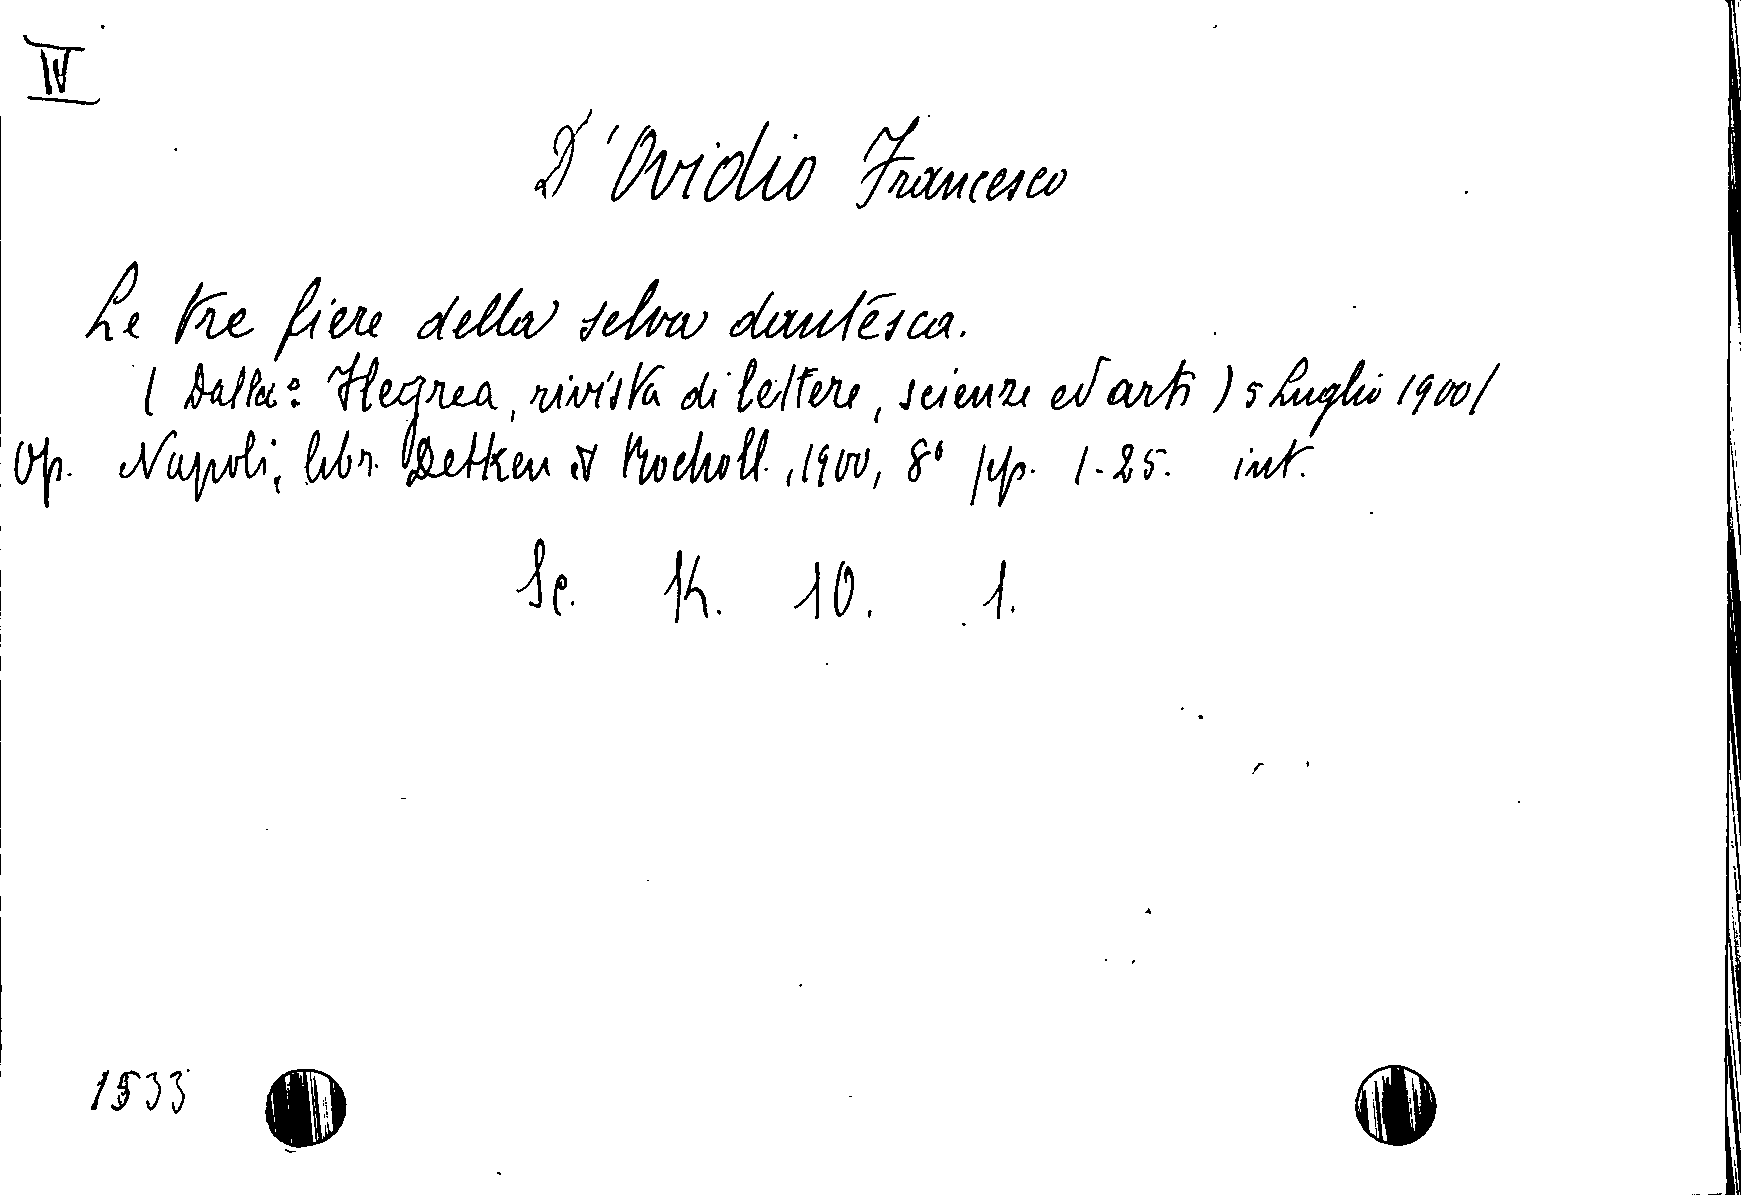 IV
D'Ovidio Francesco
Le tre fiere della selva dantesca.
( Dalla: Flegrea, rivista di lettere, scienze ed arti ) 5 Luglio 1900/
Op. Napoli, libr. Detken & Rocholl, 1900, 8° pp. 1-25. int.
Sc. K. 10. 1.
1533